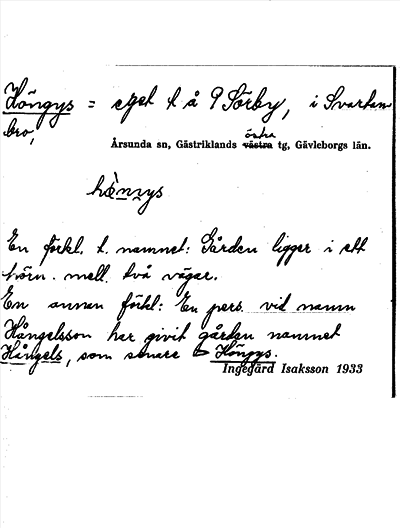 Höngys = eget t å 9 Sörby, i Svartan
bro,
östra
Årsunda sn, Gästriklands västra tg, Gävleborgs län.
En förkl. t. namnet: Gården ligger i ett
hörn mell. två vägar.
En annan förkl: En pers. vid namn
Hångelsson har givit gården namnet
Hångels, som senare Höngys.
Ingegärd Isaksson 1933